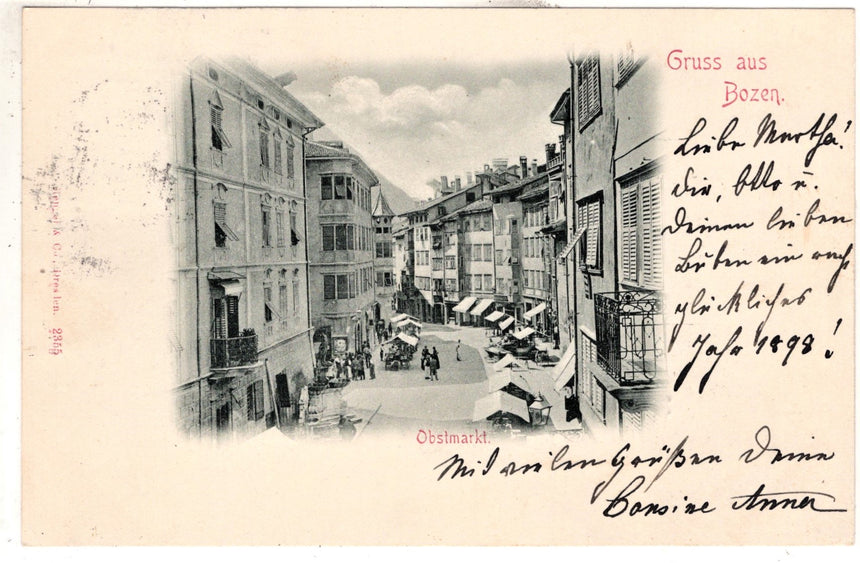 Gruss aus
Bozen.
Liebe Martha!
Dir, Otto u.
Deinen lieben
Buben ein recht
glückliches
Jahr 1898!
Obstmarkt.
Mit vielen Grüßen Deine
Cousine Anna
2355